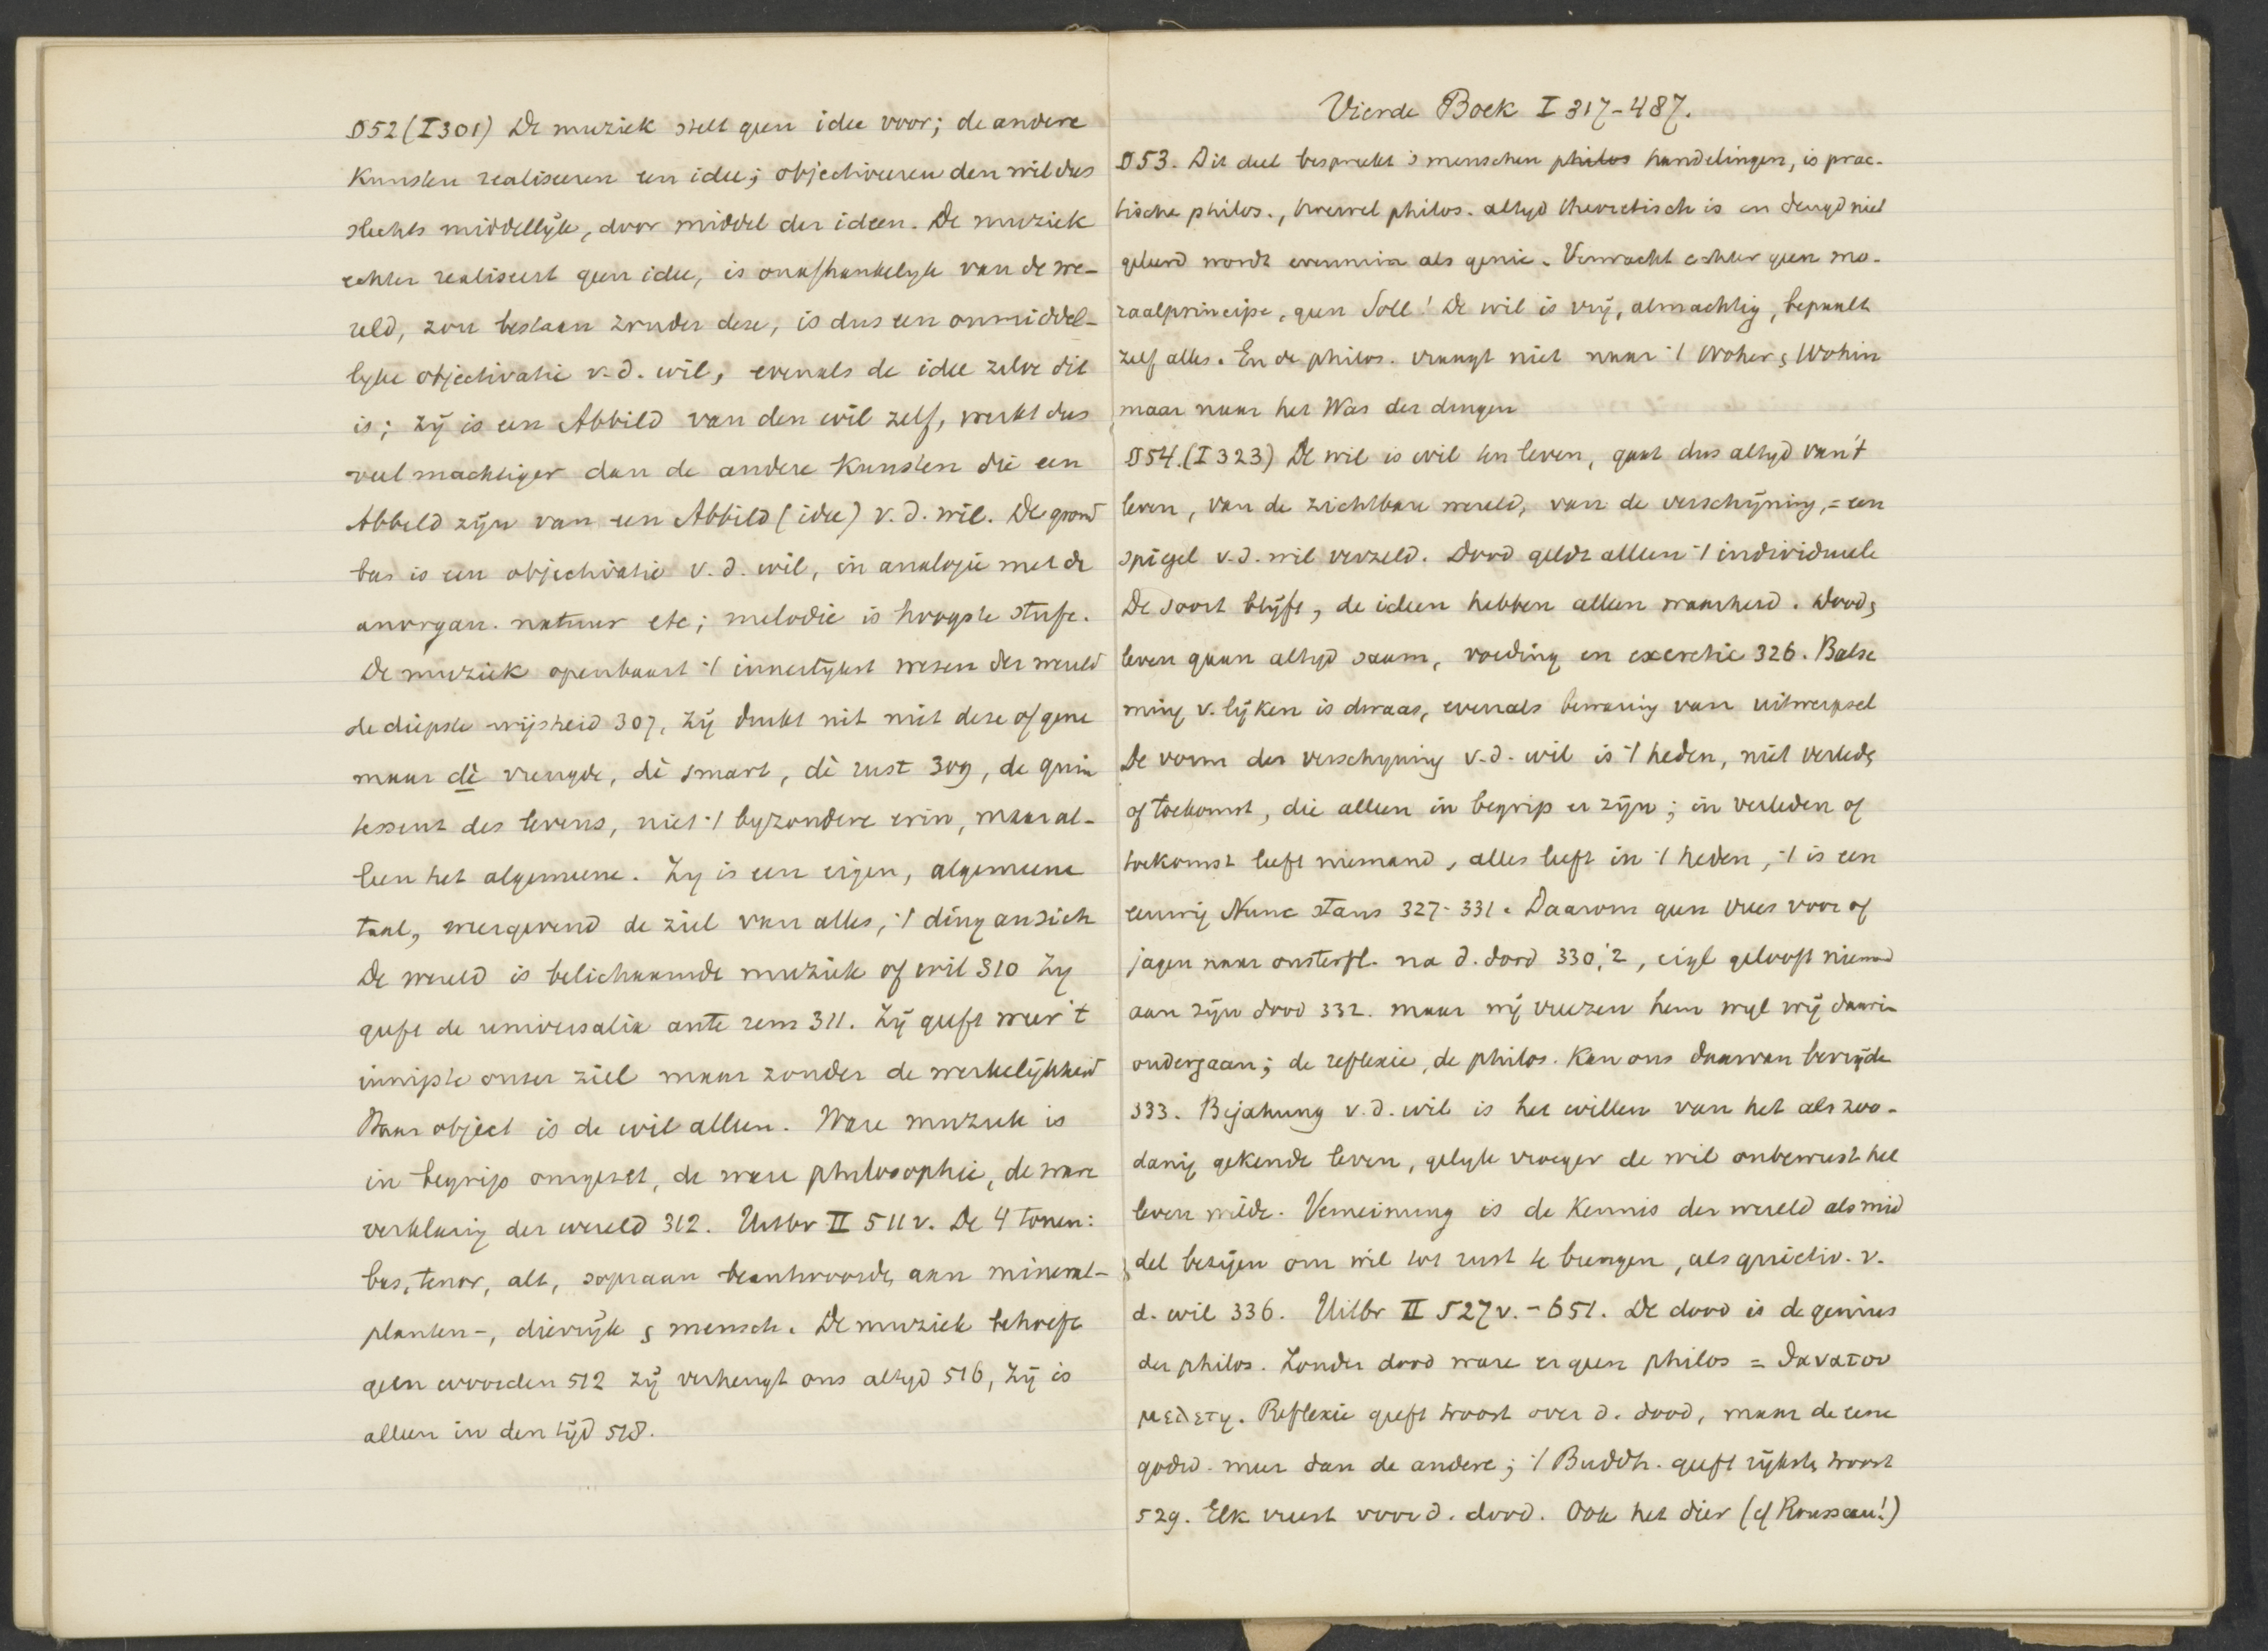 §52 (I 301) De muziek stelt geen idee voor; de andere
Kunsten realiseeren een idee; objectiveeren den wil dus
slechts middellijk, door middel der ideen. De muziek
echter realiseert geen idee, is onafhankelyk van de we-
reld, zou bestaan zonder deze, is dus een onmiddel-
lyke objectivatie v.d. wil, evenals de idee zelve dit
is; zij is een Abbild van den wil zelf, werkt dus
veel machtiger dan de andere Kunsten die een
Abbild zijn van een Abbild (idee) v.d. wil. De grond
bas is een objectivatie v.d. wil, in analogie met de
anorgan. natuur etc; melodie is hoogste Stufe.
De muziek openbaart 't innerlijkst wezen der wereld
de diepste wijsheid 307, zij drukt uit niet deze of gene
maar dè vreugde, dè smart, dè rust 309, de quin
tessens des levens, niet 't byzondere erin, maar al-
leen het algemeene. Zy is een eigen, algemeene
taal, weergevend de ziel van alles, 't ding an sich
De wereld is belichaamde muziek of wil 310 Zy
geeft de universalia ante rem 311. Zij geeft weer 't
innigste onzer ziel maar zonder de werkelijkheid
Haar object is de wil alleen. Ware muziek is
in begrip omgezet, de ware philosophie, de ware
verklaring der wereld 312. Uitbr II 511 v. De 4 tonen:
bas, tenor, alt, sopraan beantwoorden aan mineral-
planten-, dierrijk & mensch. De muziek behoeft
geen woorden 512 zij verheugt ons altyd 516, zij is
alleen in den tijd 518.
Vierde Boek I 317-487.
§53. Dit deel bespreekt 's menschen philos handelingen, is prac-
tische philos., hoewel philos. altyd theoretisch is en deugd niet
geleerd wordt evenmin als genie. Verwacht echter geen mo-
raalprincipe, geen Soll! De wil is vrij, almachtig, bepaalt
zelf alles. En de philos. vraagt niet naar 't Woher & Wohin
maar naar het Was der dingen
§54. (I 323) De wil is wil ten leven, gaat dus altyd van 't
leven, van de zichtbare wereld, van de verschijning, = een
spiegel v.d. wil verzeld. Dood geldt alleen 't individueele
De soort blijft, de ideen hebben alleen waarheid. Dood &
leven gaan altyd saam, voeding en excretie 326. Balse
ming v. lijken is dwaas, evenals bewaring van uitwerpsel
De vorm der verschyning v.d. wil is 't heden, niet verleden
of toekomst, die alleen in begrip er zijn; in verleden of
toekomst leeft niemand, alles leeft in 't heden, 't is een
eeuwig Nunc stans 327-331. Daarom geen vrees voor of
jagen naar onsterfl. na d. dood 330, 2, eigl gelooft niemand
aan zijn dood 332. maar wij vreezen hem wyl wij daarin
ondergaan; de reflexie, de philos. Kan ons daarvan bevrijde
333. Bejahung v.d. wil is het willen van het als zoo-
danig gekende leven, gelyk vroeger de wil onbewust het
leven wilde. Verneinung is de Kennis der wereld als mid
del bezigen om wil tot rust te brengen, als quietiv. v.
d. wil 336. Uitbr II 527 v. - 651. De dood is de genius
der philos. Zonder dood ware er geen philos = θανατου
μελετη. Reflexie geeft troost over d. dood, maar de eene
godsd. meer dan de andere; 't Buddh. geeft rijkste troost
529. Elk vreest voor d. dood. Ook het dier (cf Rousseau!)